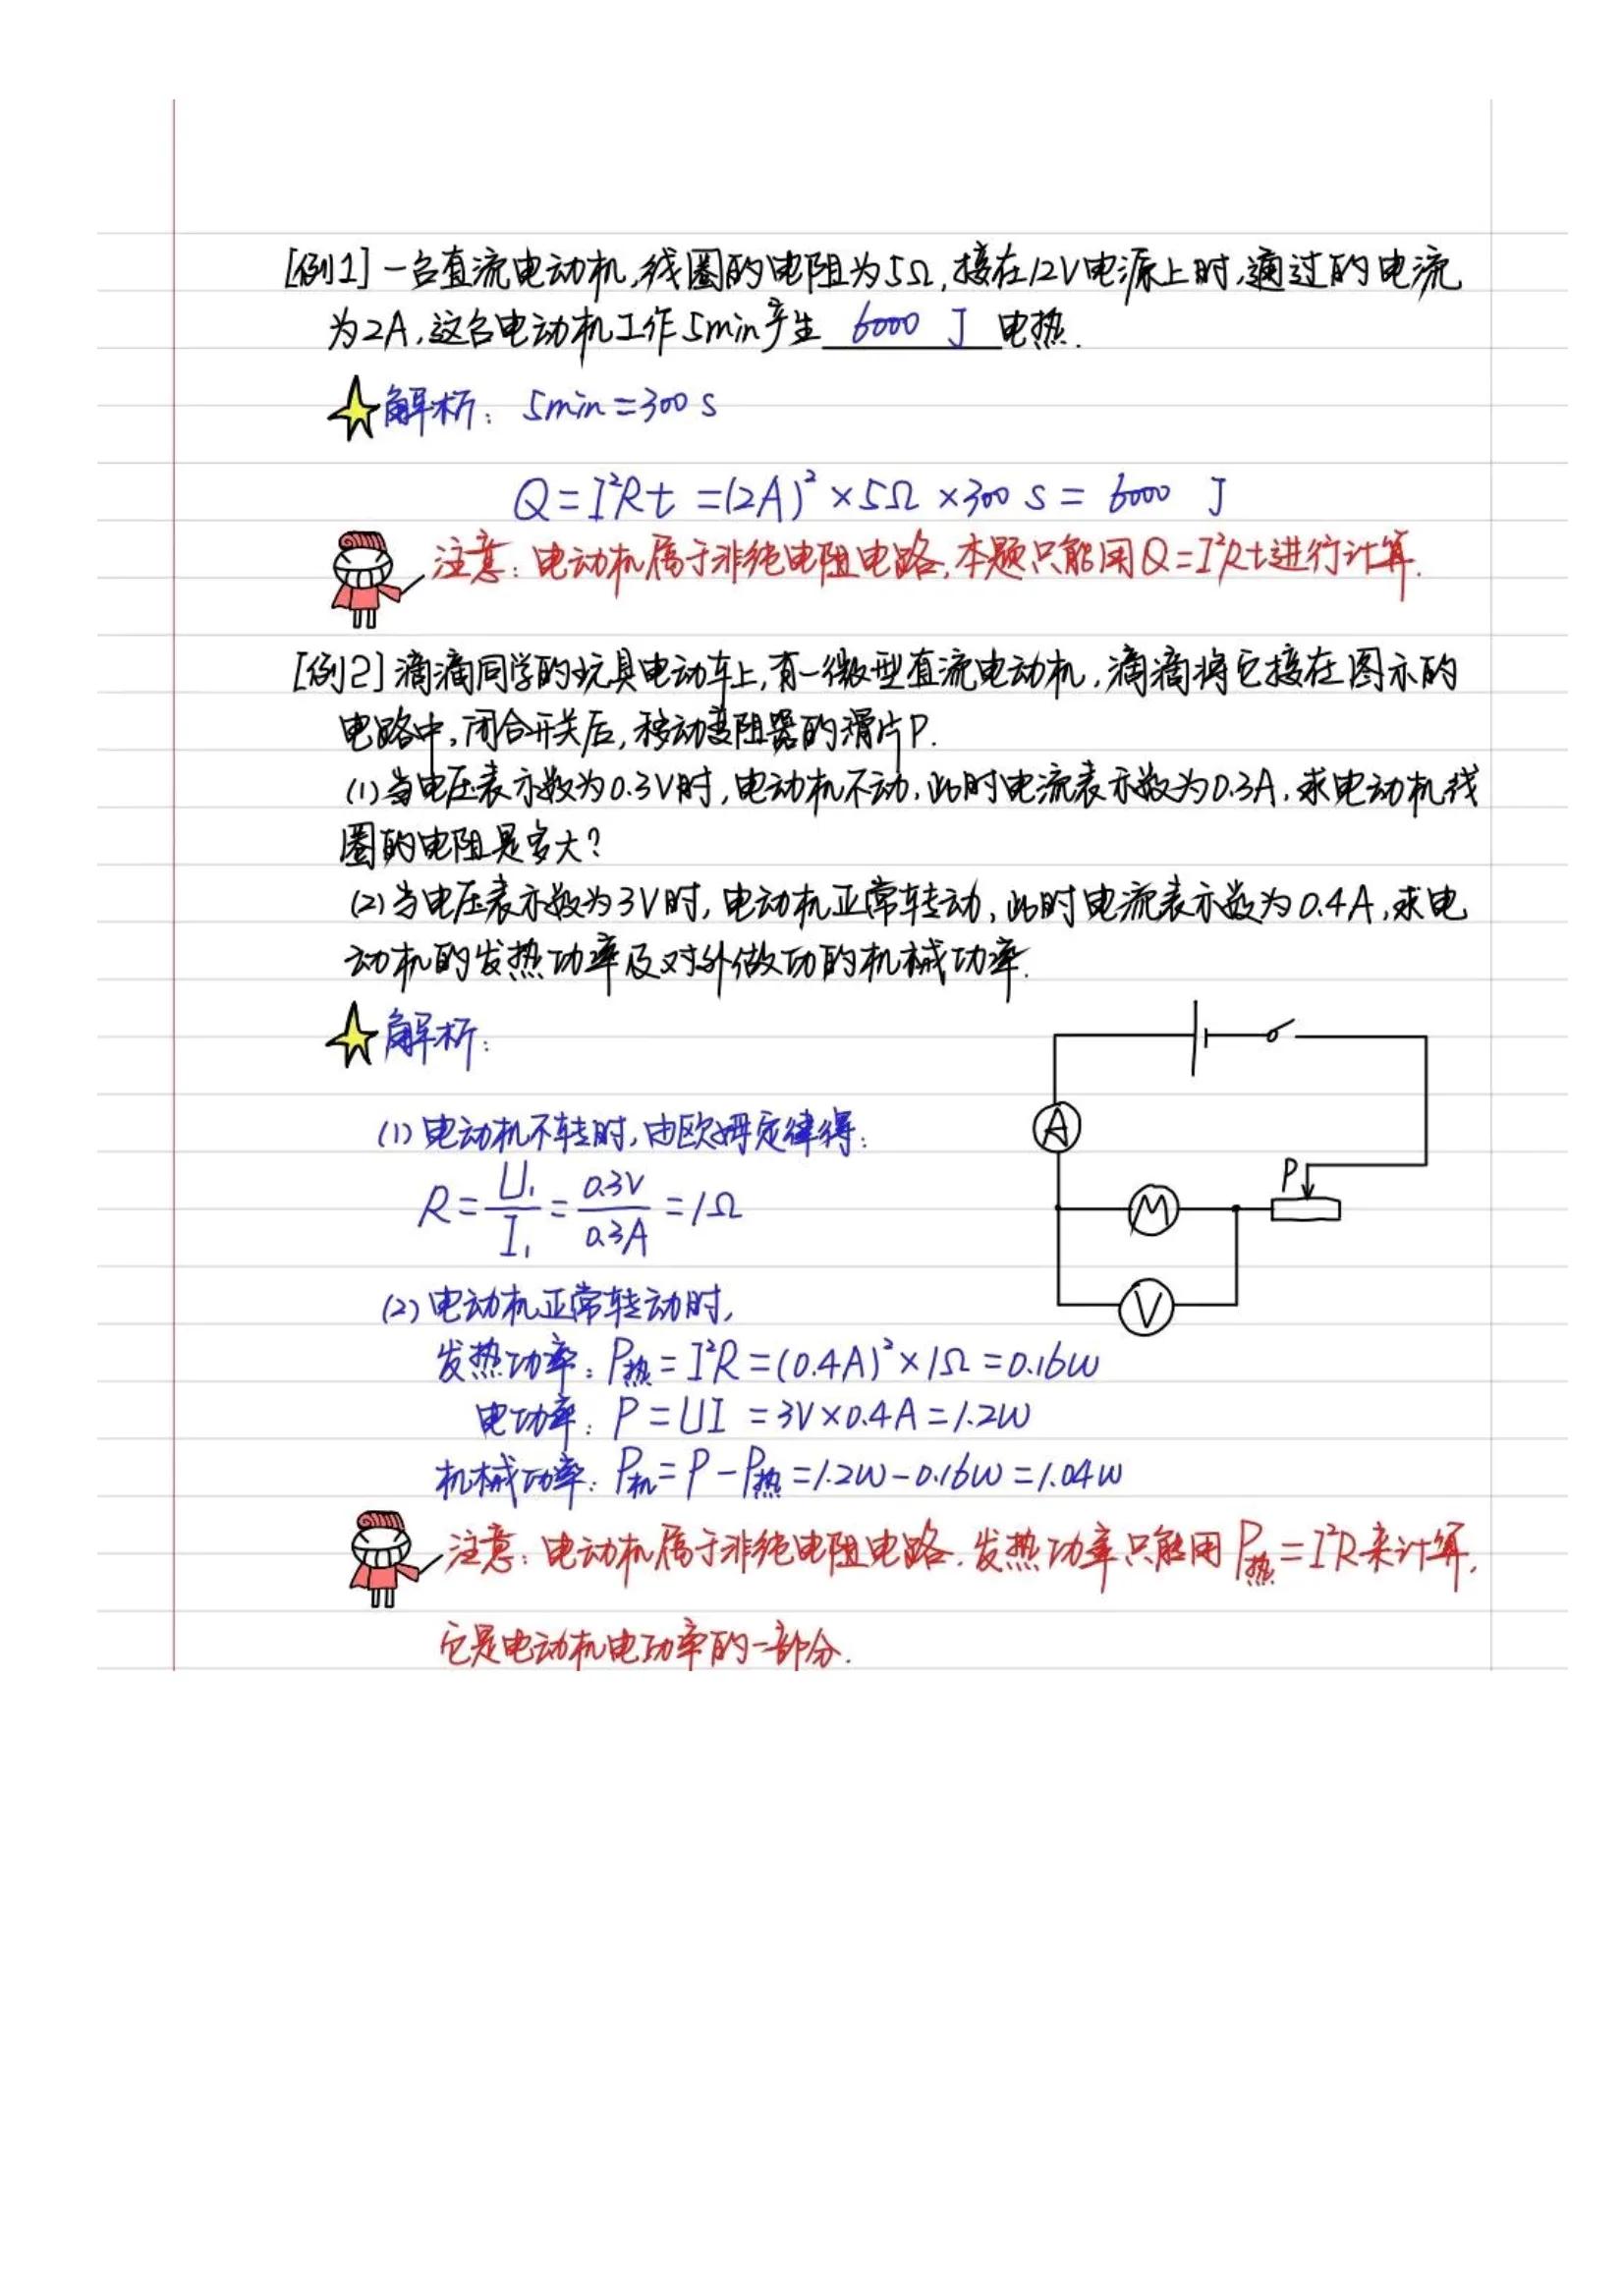 [例1] 一台直流电动机,线圈的电阻为5Ω,接在12V电源上时,通过的电流
为2A,这台电动机工作5min产生 6000 J 电热.
解析: 5min=300 s
Q=I²Rt=(2A)²×5Ω×300 s= 6000 J
注意:电动机属于非纯电阻电路,本题只能用Q=I²Rt进行计算.
[例2] 滴滴同学的玩具电动车上,有一微型直流电动机,滴滴将它接在图示的
电路中,闭合开关后,移动变阻器的滑片P.
(1)当电压表示数为0.3V时,电动机不动,此时电流表示数为0.3A,求电动机线
圈的电阻是多大?
(2)当电压表示数为3V时,电动机正常转动,此时电流表示数为0.4A,求电
动机的发热功率及对外做功的机械功率.
解析:
(1)电动机不转时,由欧姆定律得:
R=U₁/I₁=0.3V/0.3A=1Ω
(2)电动机正常转动时,
发热功率:P热=I²R=(0.4A)²×1Ω=0.16W
电功率:P=UI=3V×0.4A=1.2W
机械功率:P机=P-P热=1.2W-0.16W=1.04W
A
P
M
V
注意:电动机属于非纯电阻电路.发热功率只能用P热=I²R来计算,
它是电动机电功率的一部分.